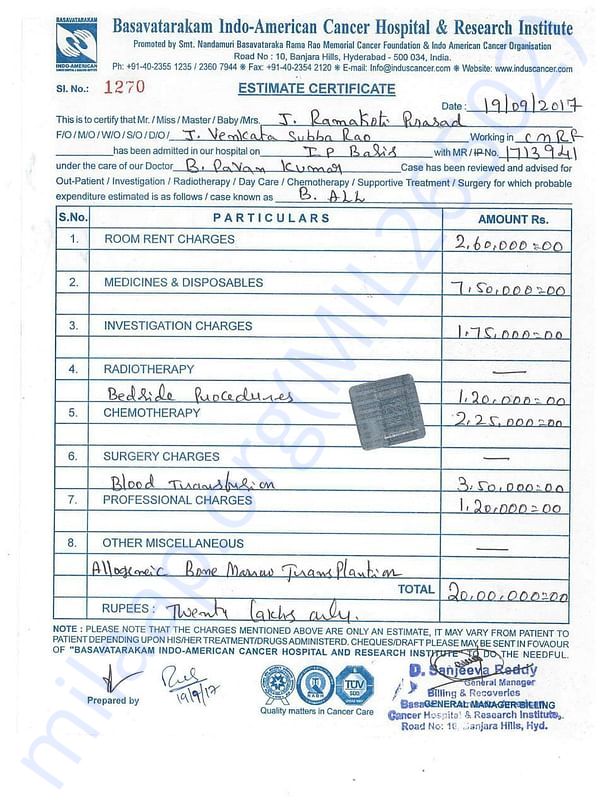 BASAVATARAKAM
INDO-AMERICAN
Basavatarakam Indo-American Cancer Hospital & Research Institute
Promoted by Smt. Nandamuri Basavataraka Rama Rao Memorial Cancer Foundation & Indo American Cancer Organisation
Road No : 10, Banjara Hills, Hyderabad - 500 034, India.
Ph: +91-40-2355 1235 / 2360 7944 ❋ Fax: +91-40-2354 2120 ❋ E-mail: Info@induscancer.com ❋ Website: www.induscancer.com
Sl. No.: 1270 ESTIMATE CERTIFICATE
Date: 19/09/2017
This is to certify that Mr. / Miss / Master / Baby /Mrs. J. Ramakoti Prasad
F/O / M/O / W/O / S/O / D/O / J. Venkata Subba Rao Working in CMRF
has been admitted in our hospital on I P Basis with MR / IP No. 1713941
under the care of our Doctor B. Pavan Kumar Case has been reviewed and advised for
Out-Patient / Investigation / Radiotherapy / Day Care / Chemotherapy / Supportive Treatment / Surgery for which probable
expenditure estimated is as follows / case known as B. ALL
S.No. PARTICULARS AMOUNT Rs.
1. ROOM RENT CHARGES 2,60,000=00
2. MEDICINES & DISPOSABLES 7,50,000=00
3. INVESTIGATION CHARGES 1,75,000=00
4. RADIOTHERAPY —
Bedside Procedures 1,20,000=00
5. CHEMOTHERAPY 2,25,000=00
6. SURGERY CHARGES —
Blood Transfusion 3,50,000=00
7. PROFESSIONAL CHARGES 1,20,000=00
8. OTHER MISCELLANEOUS —
Allogeneic Bone Marrow Transplantion
TOTAL 20,00,000=00
RUPEES : Twenty Lakhs only.
NOTE : PLEASE NOTE THAT THE CHARGES MENTIONED ABOVE ARE ONLY AN ESTIMATE, IT MAY VARY FROM PATIENT TO
PATIENT DEPENDING UPON HIS/HER TREATMENT/DRUGS ADMINISTERD. CHEQUES/DRAFT PLEASE MAY BE SENT IN FOVAOUR
OF "BASAVATARAKAM INDO-AMERICAN CANCER HOSPITAL AND RESEARCH INSTITUTE" TO DO THE NEEDFUL.
19/9/17
Prepared by
NABH
TÜV
SÜD
Quality matters in Cancer Care
D. Sanjeeva Reddy
General Manager
Billing & Recoveries
GENERAL MANAGER BILLING
Cancer Hospital & Research Institute,
Road No: 10, Banjara Hills, Hyd.
milaap.org(MIL265027)